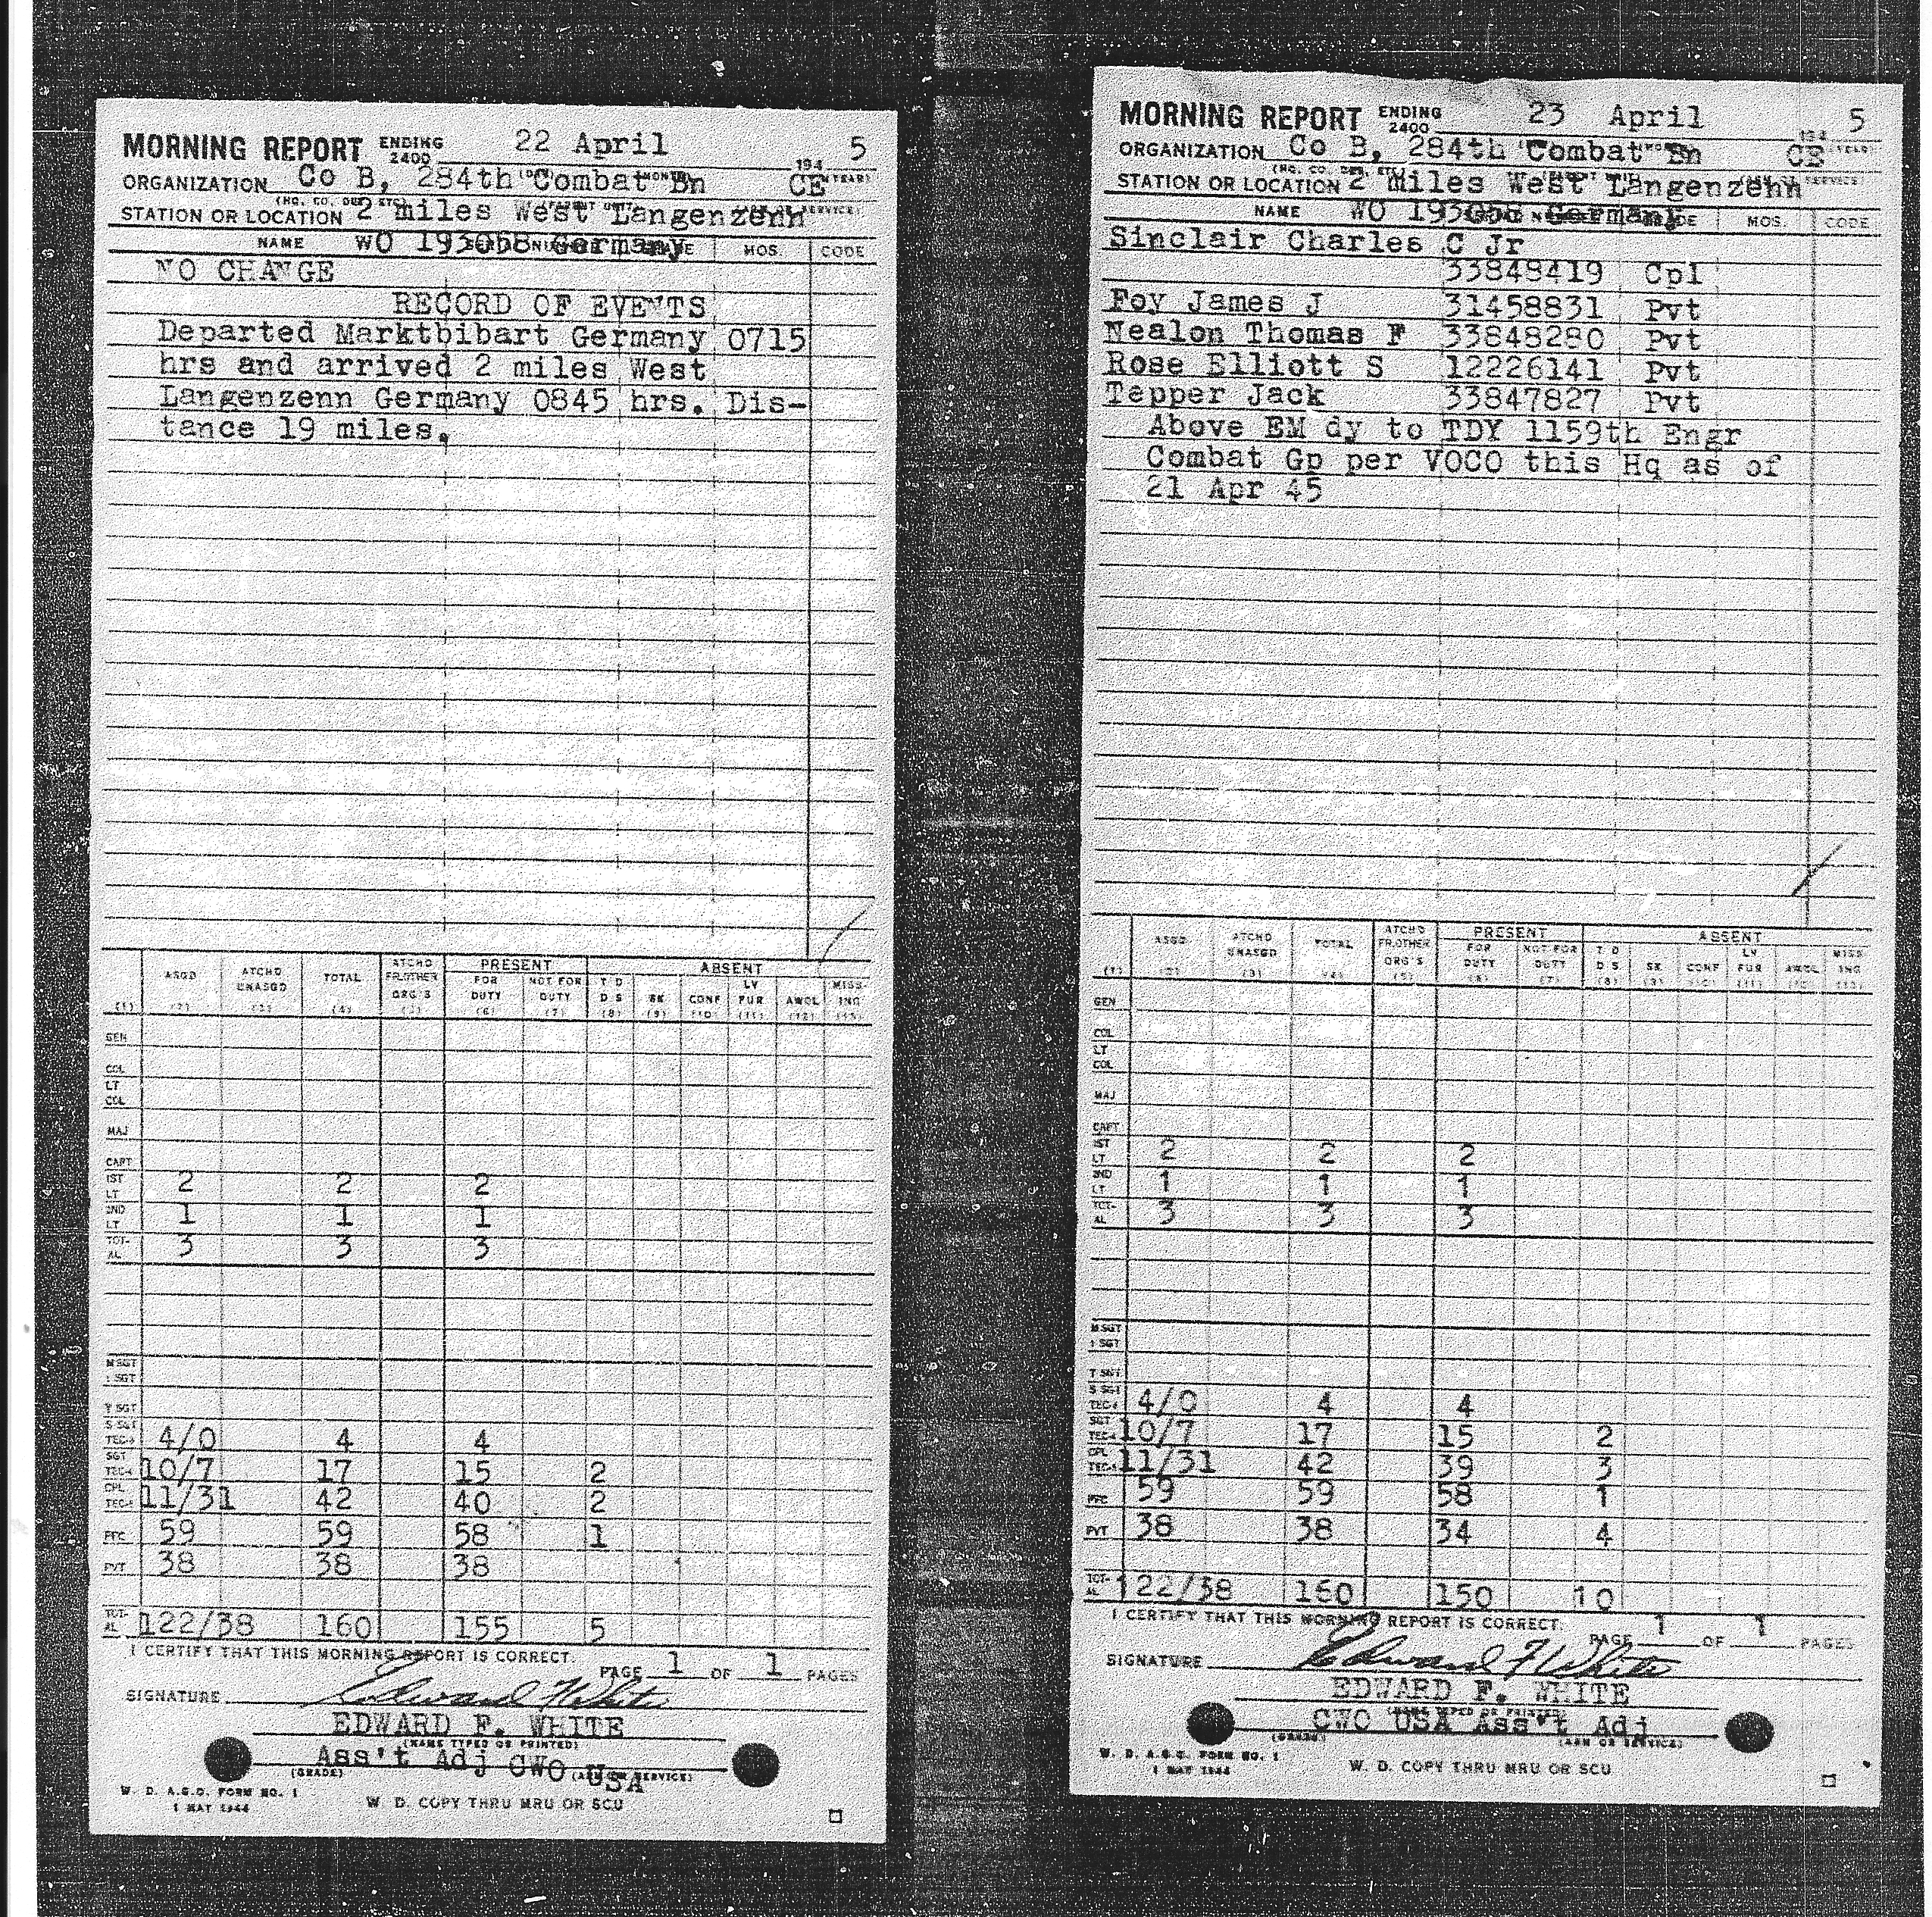 MORNING REPORT ENDING 2400 22 April 194 5
ORGANIZATION Co B, 284th Combat Bn CE
STATION OR LOCATION 2 miles West Langenzenn
NAME WO 193058 Germany MOS CODE
NO CHANGE
RECORD OF EVENTS
Departed Marktbibart Germany 0715
hrs and arrived 2 miles West
Langenzenn Germany 0845 hrs. Dis-
tance 19 miles.
ASGD ATCHD UNASGD TOTAL ATCHD FR.OTHER ORG'S PRESENT FOR DUTY NOT FOR DUTY ABSENT T D D S SK CONF LV FUR AWOL MISS-ING
(1) (2) (3) (4) (5) (6) (7) (8) (9) (10) (11) (12) (13)
GEN
COL
LT COL
MAJ
CAPT
1ST LT 2 2 2
2ND LT 1 1 1
TOT-AL 3 3 3
M SGT
1 SGT
T SGT
S SGT TEC-3 4/0 4 4
SGT TEC-4 10/7 17 15 2
CPL TEC-5 11/31 42 40 2
PFC 59 59 58 1
PVT 38 38 38
TOT-AL 122/38 160 155 5
I CERTIFY THAT THIS MORNING REPORT IS CORRECT.
PAGE 1 OF 1 PAGES
SIGNATURE Edward F White
EDWARD F. WHITE
(NAME TYPED OR PRINTED)
Ass't Adj CWO USA
(GRADE) (ARM OR SERVICE)
W. D. A.G.O. FORM NO. 1
1 MAY 1944
W. D. COPY THRU MRU OR SCU
MORNING REPORT ENDING 2400 23 April 194 5
ORGANIZATION Co B, 284th Combat Bn CE
STATION OR LOCATION 2 miles West Langenzenn
NAME WO 193058 Germany MOS. CODE
Sinclair Charles C Jr
33848419 Cpl
Foy James J 31458831 Pvt
Nealon Thomas F 33848280 Pvt
Rose Elliott S 12226141 Pvt
Tepper Jack 33847827 Pvt
Above EM dy to TDY 1159th Engr
Combat Gp per VOCO this Hq as of
21 Apr 45
ASGD ATCHD UNASGD TOTAL ATCHD FR.OTHER ORG'S PRESENT FOR DUTY NOT FOR DUTY ABSENT T D D S SK CONF LV FUR AWOL MISS-ING
(1) (2) (3) (4) (5) (6) (7) (8) (9) (10) (11) (12) (13)
GEN
COL
LT COL
MAJ
CAPT
1ST LT 2 2 2
2ND LT 1 1 1
TOT-AL 3 3 3
M SGT
1 SGT
T SGT
S SGT TEC-3 4/0 4 4
SGT TEC-4 10/7 17 15 2
CPL TEC-5 11/31 42 39 3
PFC 59 59 58 1
PVT 38 38 34 4
TOT-AL 122/38 160 150 10
I CERTIFY THAT THIS MORNING REPORT IS CORRECT.
PAGE 1 OF 1 PAGES
SIGNATURE Edward F White
EDWARD F. WHITE
(NAME TYPED OR PRINTED)
CWO USA Ass't Adj
(GRADE) (ARM OR SERVICE)
W. D. A.G.O. FORM NO. 1
1 MAY 1944
W. D. COPY THRU MRU OR SCU